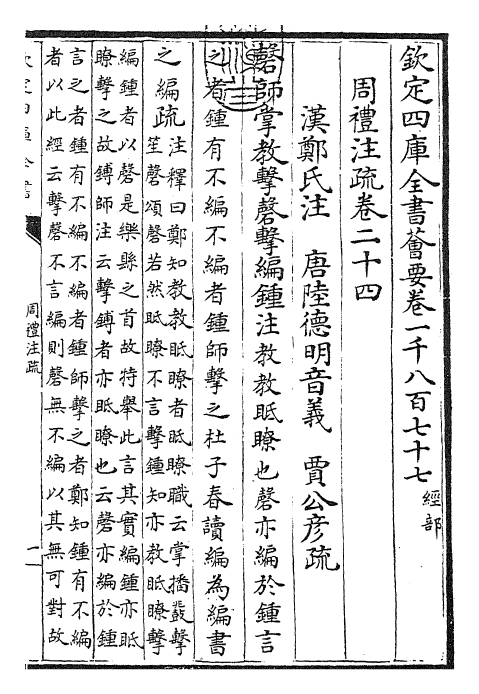 欽定四庫全書薈要卷一千八百七十七 經部
周禮注疏卷二十四
漢鄭氏注 唐陸德明音義 賈公彦疏
磬師掌教擊磬擊編鍾注教教眡瞭也磬亦編於鍾言
之者鍾有不編不編者鍾師擊之杜子春讀編為編書
之編疏
注釋曰鄭知教教眡瞭者眡瞭職云掌播鼗擊
笙磬頌磬若然眡瞭不言擊鍾知亦教眡瞭擊
編鍾者以磬是樂縣之首故特舉此言其實編鍾亦眡
瞭擊之故鎛師注云擊鎛者亦眡瞭也云磬亦編於鍾
言之者鍾有不編不編者鍾師擊之者鄭知鍾有不編
者以此經云擊磬不言編則磬無不編以其無可對故
欽定四庫全書
周禮注疏
一